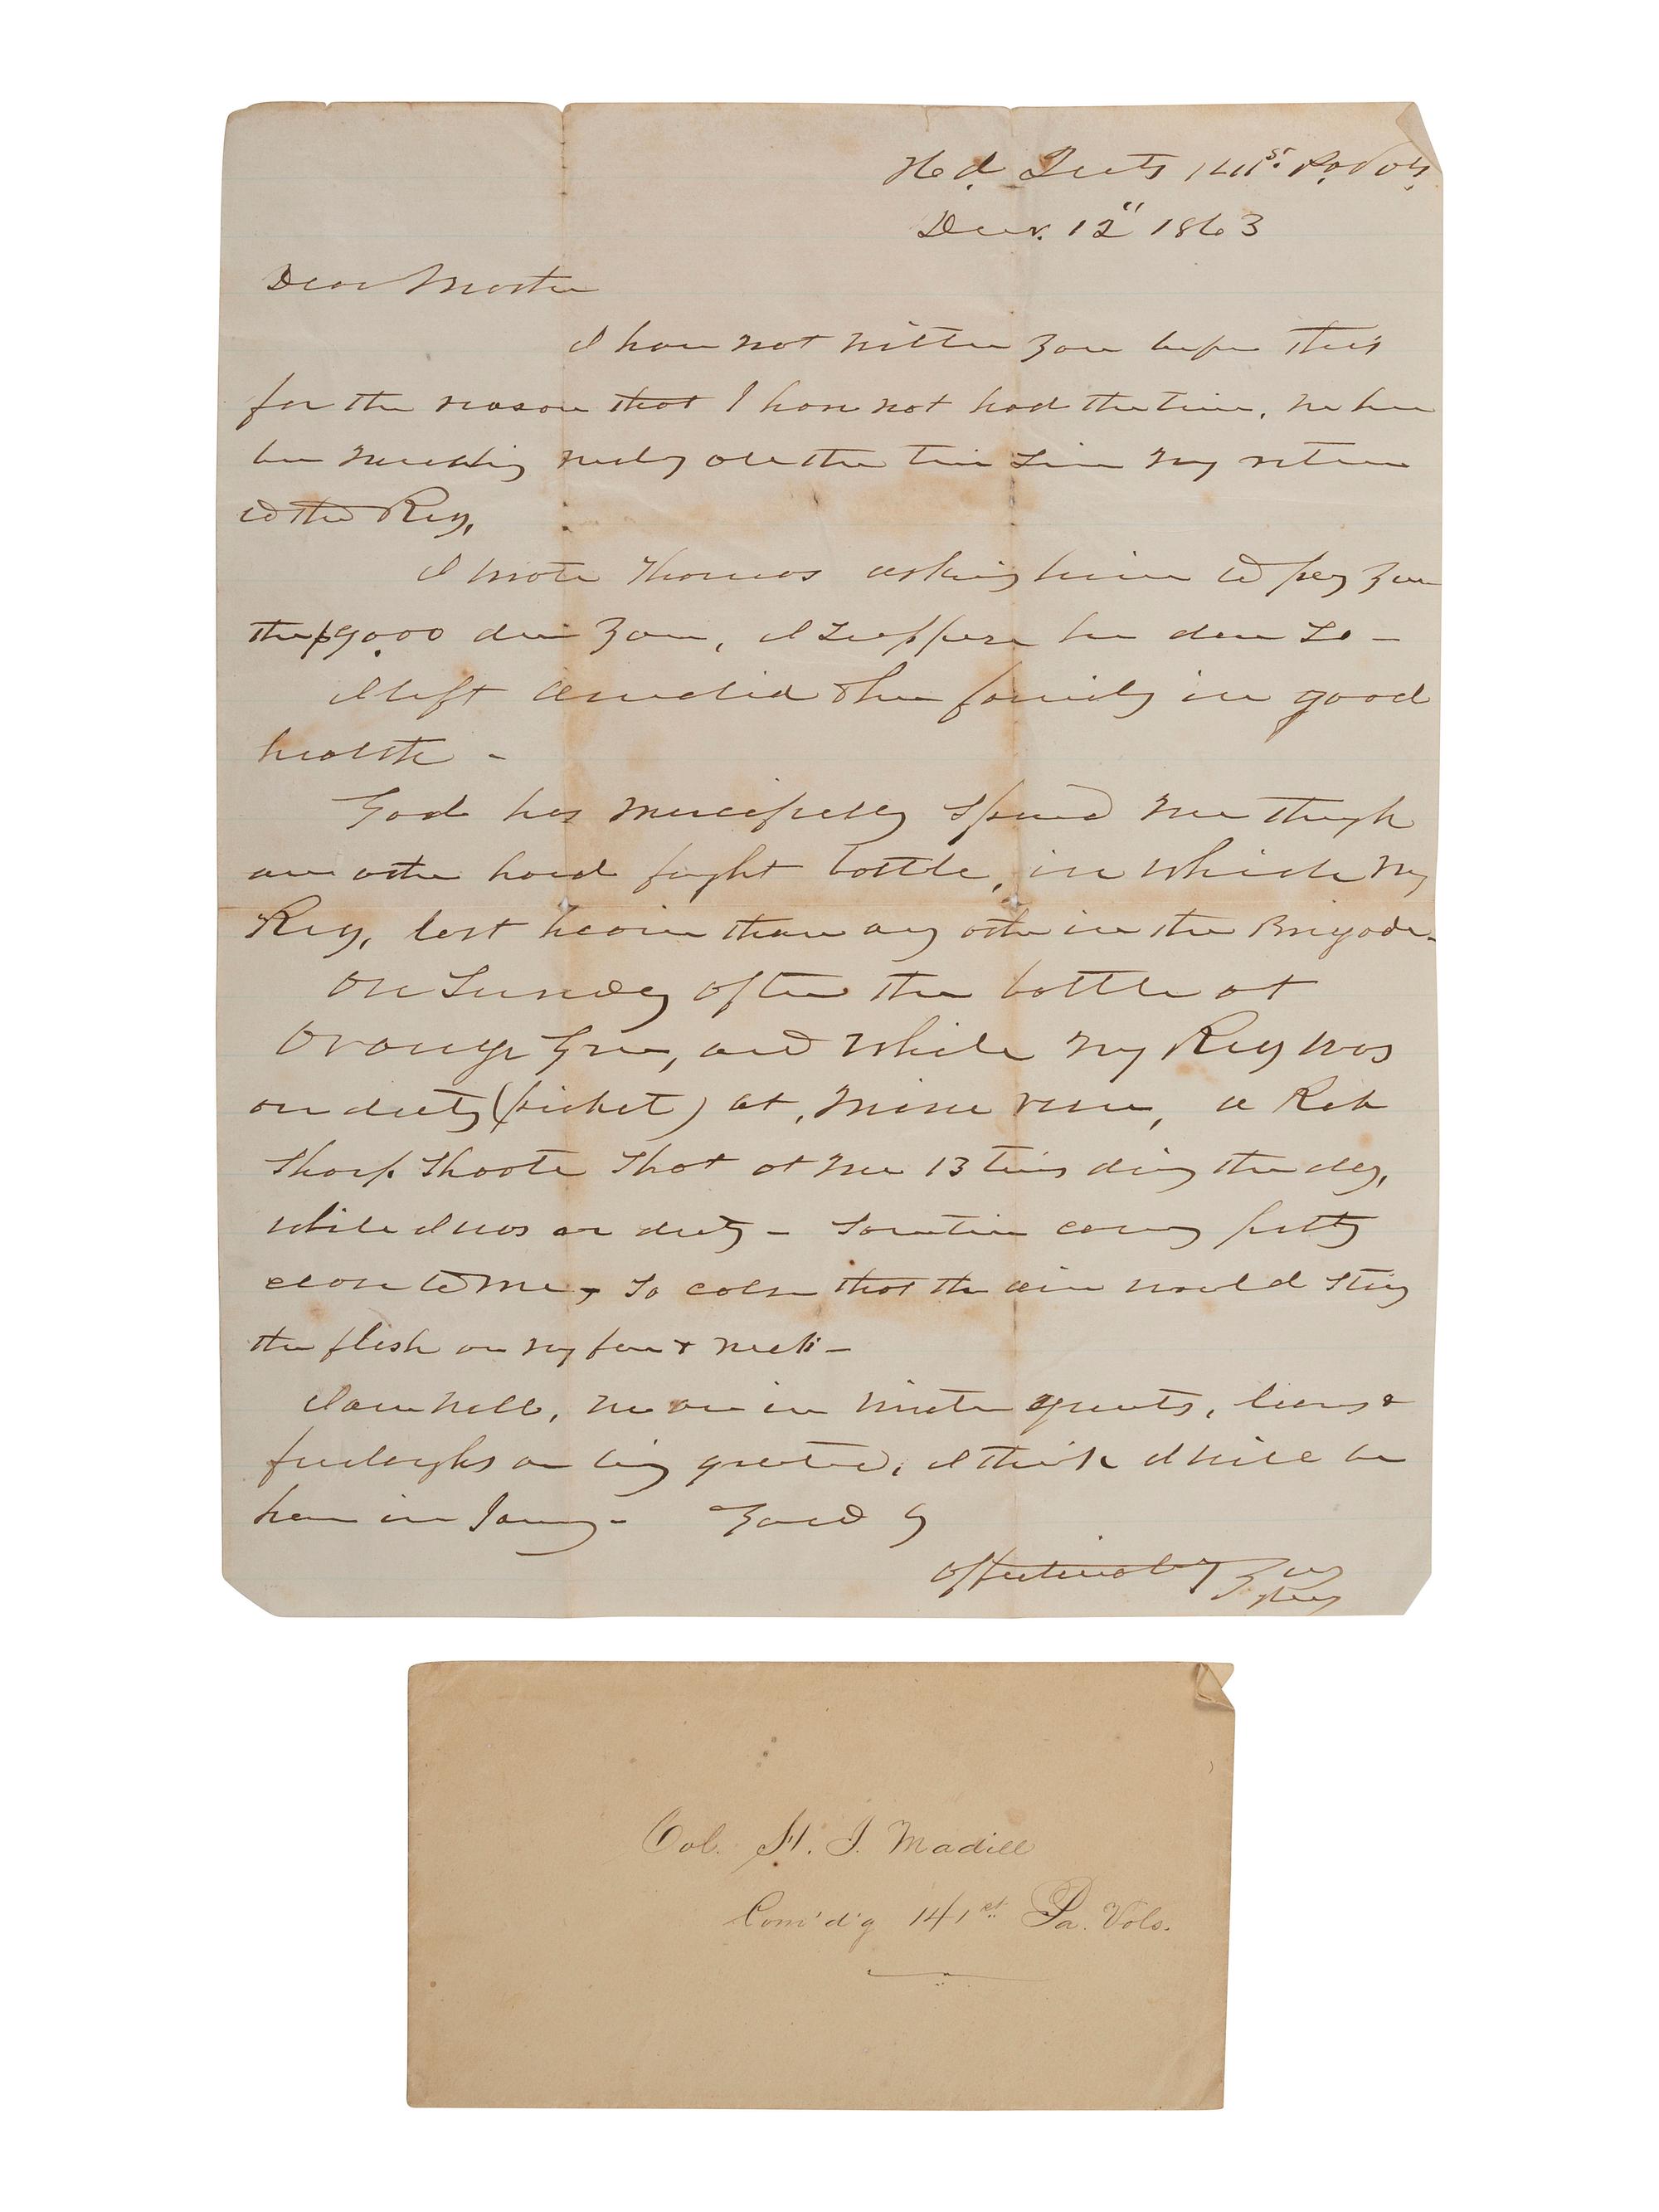 Hd. Quts 141st. P.Vols.
Decr. 12" 1863
Dear Mother
I have not written you before this
for the reason that I have not had the time. We have
been marching nearly all the time since my return
to the Reg.
I wrote Thomas asking him to pay you
the $90.00 due you, I suppose he done so -
I left Amelia & the family in good
health -
God has mercifully spared me through
another hard fought battle, in which my
Reg, lost heavier than any other in the Brigade -
On Sunday after the battle at
Orange Grove, and while my Reg was
on duty (picket) at, Mine run, a Reb
Sharp Shooter Shot at me 13 times during the day,
while I was on duty - Sometimes coming pretty
close to me, So close that the air would sting
the flesh on my face & neck -
I am well, We are in winter quarters, leaves &
furloughs are being granted, I think I will be
home in January - Good By
Affectionately Yours
Col. H. J. Madill
Com'd'g 141st. Pa. Vols.